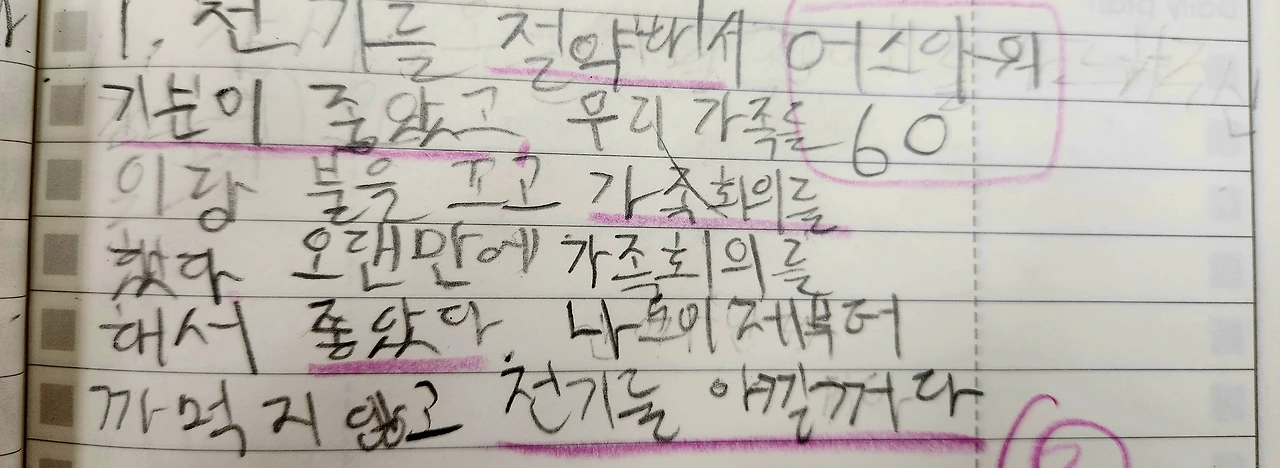 1. 전기를 절약해서 어스알의
기분이 좋았고 우리 가족들 60
이랑 불을 끄고 가족회의를
했다 오랜만에 가족회의를
해서 좋았다 나도 이제부터
까먹지 않고 전기를 아낄꺼다